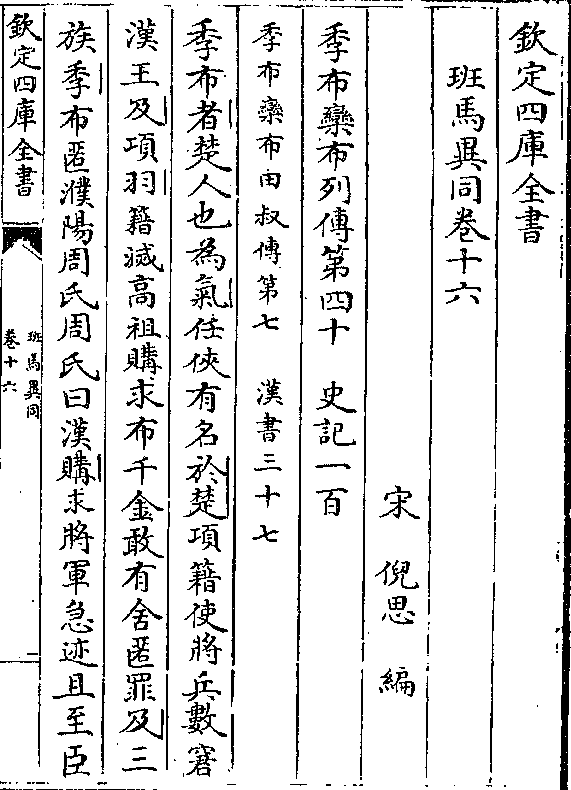 欽定四庫全書
班馬異同卷十六
宋　倪思　編
季布欒布列傳第四十　史記一百
季布欒布田叔傳第七　漢書三十七
季布者楚人也為氣任俠有名於楚項籍使將兵數窘
漢王及項羽籍滅高祖購求布千金敢有舍匿罪及三
族季布匿濮陽周氏周氏曰漢購求將軍急迹且至臣
欽定四庫全書
班馬異同
卷十六
一